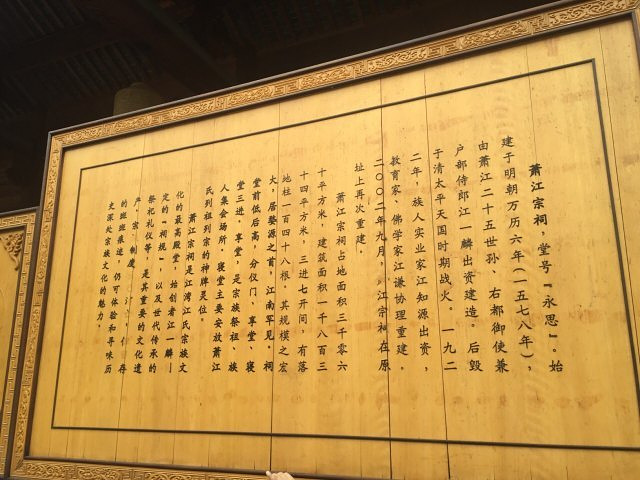 萧江宗祠，堂号“永思”。始
建于明朝万历六年(一五七八年)，
由萧江二十五世孙、右都御使兼
户部侍郎江一麟出资建造。后毁
于清太平天国时期战火。一九二
二年，族人实业家江知源出资，
教育家、佛学家江谦协理重建。
二〇〇二年九月，江宗祠在原
址上再次重建。
萧江宗祠占地面积三千零六
十平方米，建筑面积一千八百三
十四平方米，三进七开间，有落
地柱一百四十八根，其规模之宏
大，居婺源之首，江南罕见。祠
堂前低后高，分仪门、享堂、寝
堂三进。享堂，是宗族祭祖、族
人集会场所，寝堂主要安放萧江
氏列祖列宗的神牌灵位。
萧江宗祠是江湾江氏宗族文
化的最高殿堂，始创者江一麟
定的“祠规”，以及世代传承的
祭祀礼仪等，是其重要的文化遗
产。宗制度，存
的斑斑痕迹，仍可体验和寻味历
史深处宗族文化的魅力。